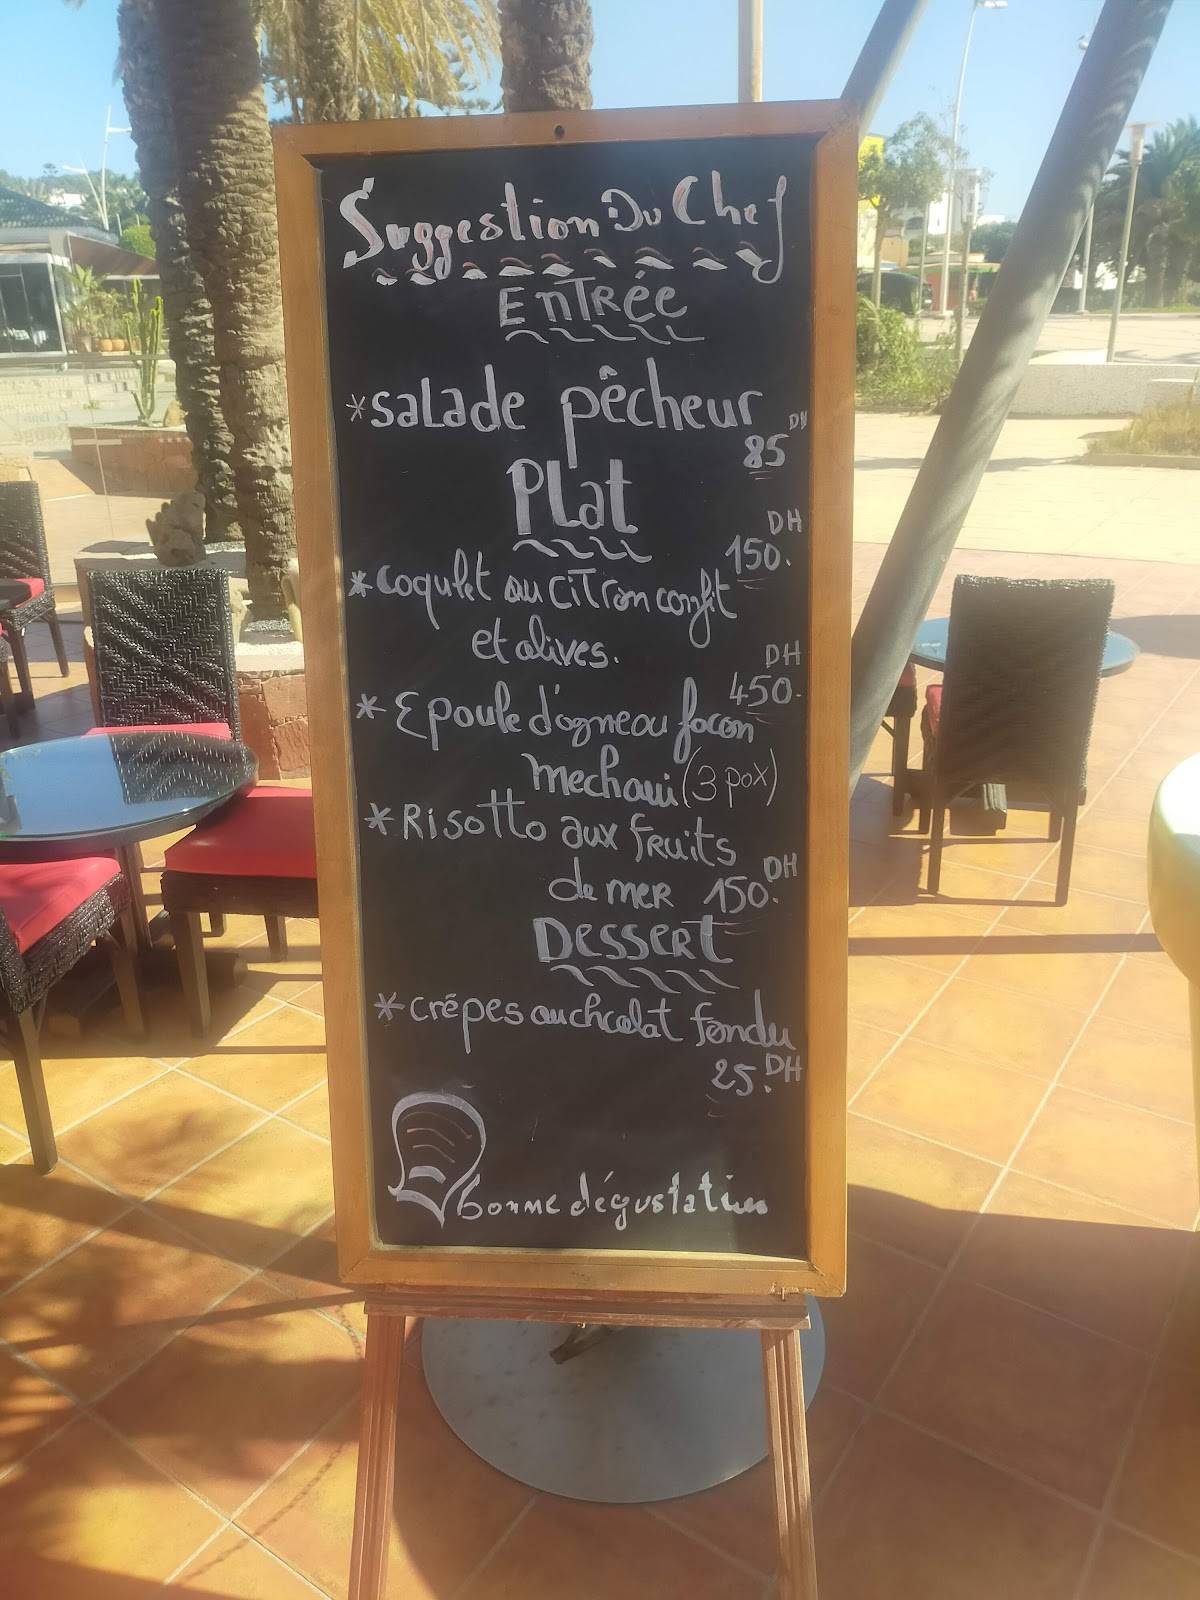 Suggestion Du Chef
Entrée
*salade pêcheur
85 DH
Plat
150. DH
*coqulet au citron confit
et olives.
450. DH
*Epoule d'agneau facon
mechoui (3 pax)
*Risotto aux fruits
de mer 150. DH
Dessert
*crêpes au chcolat fondu
25. DH
bonne dégustation